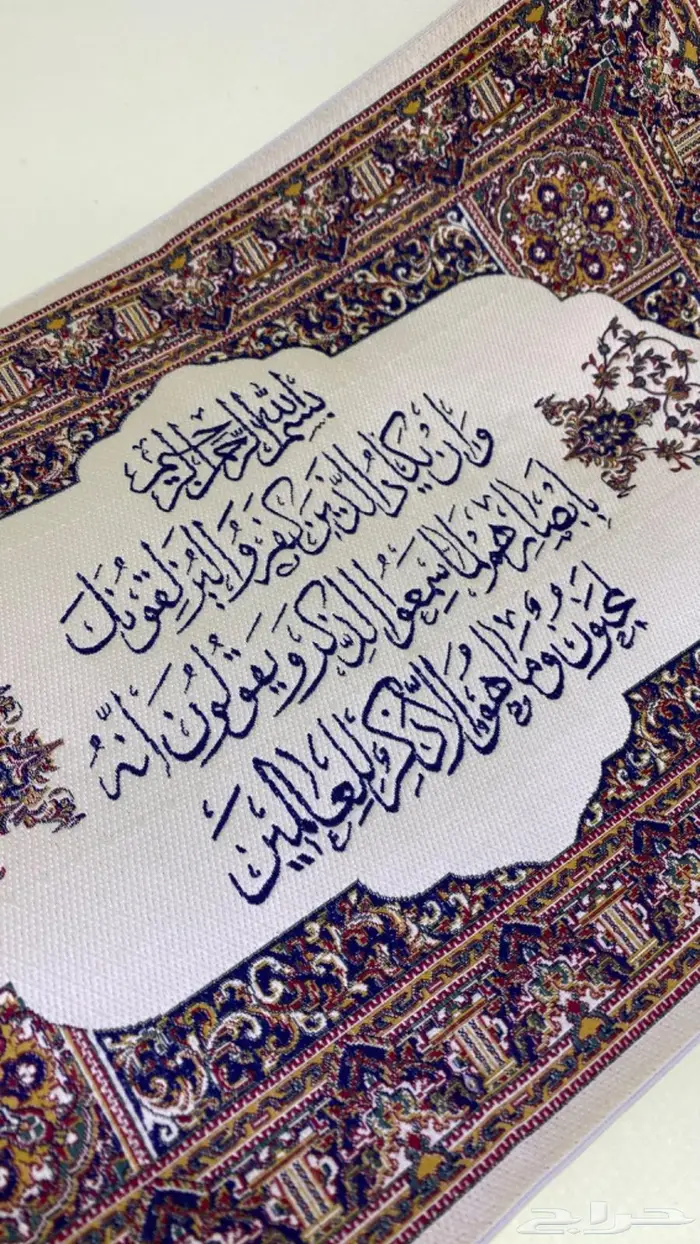 بسم الله الرحمن الرحيم
وَاِنْ يَكَادُ الَّذينَ كَفَرُوا لَيُزْلِقُونَكَ
بِاَبْصَارِهِمْ لَمَّا سَمِعُوا الذِكْرَ وَيَقُولُونَ اِنَّهُ
لَمَجْنُونٌ وَمَا هُوَ اِلَّا ذِكْرٌ لِلْعَالَمينَ
حراج